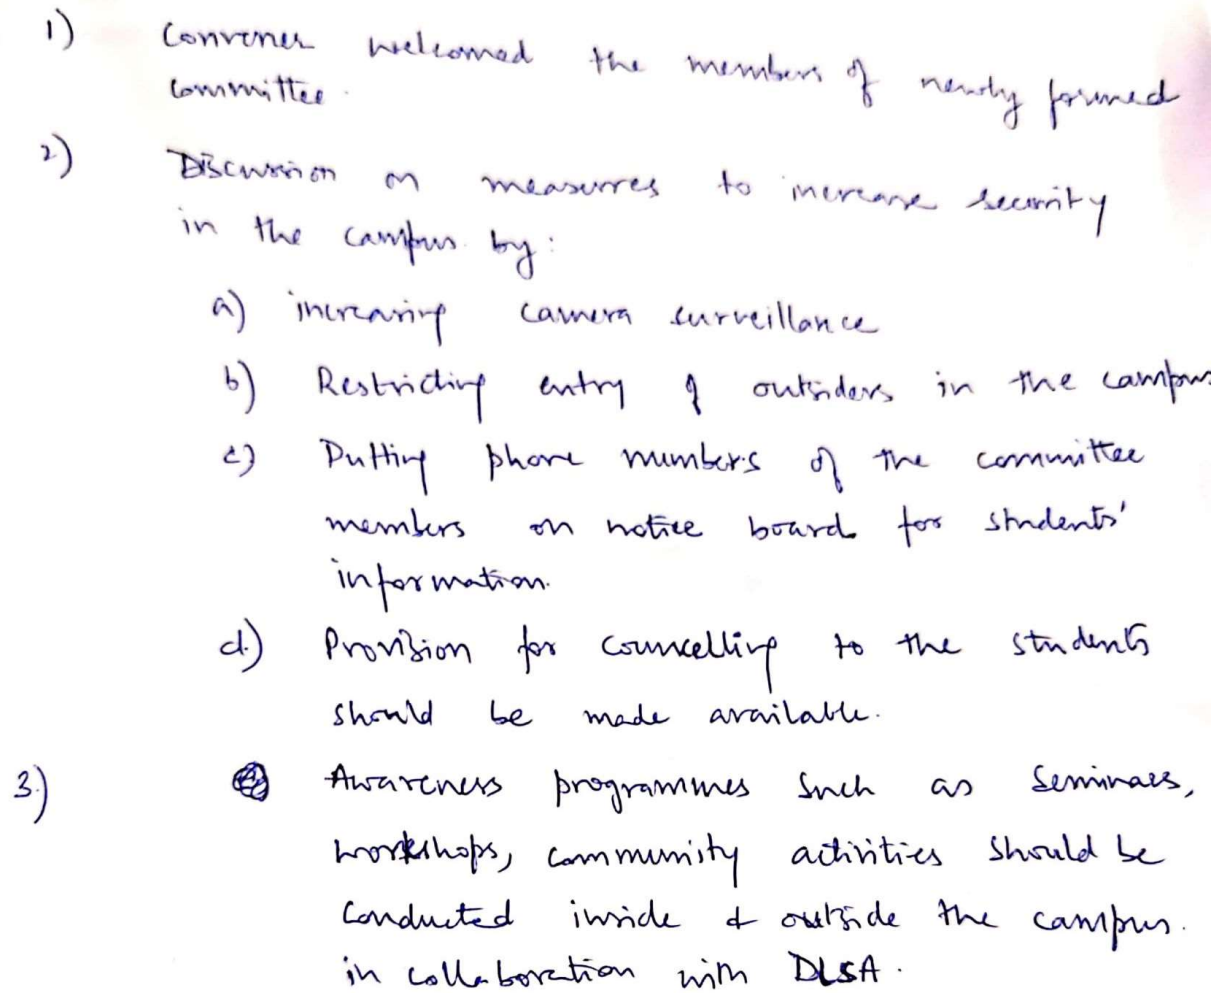 1) Convener welcomed the members of newly formed
committee.
2) Discussion on measures to increase security
in the campus by:
a) increasing camera surveillance
b) Restricting entry of outsiders in the campus
c) Putting phone numbers of the committee
members on notice board for students'
information.
d) Provision for councelling to the students
should be made available.
3) Awareness programmes such as Seminars,
workshops, community activities should be
conducted inside & outside the campus.
in collaboration with DLSA.